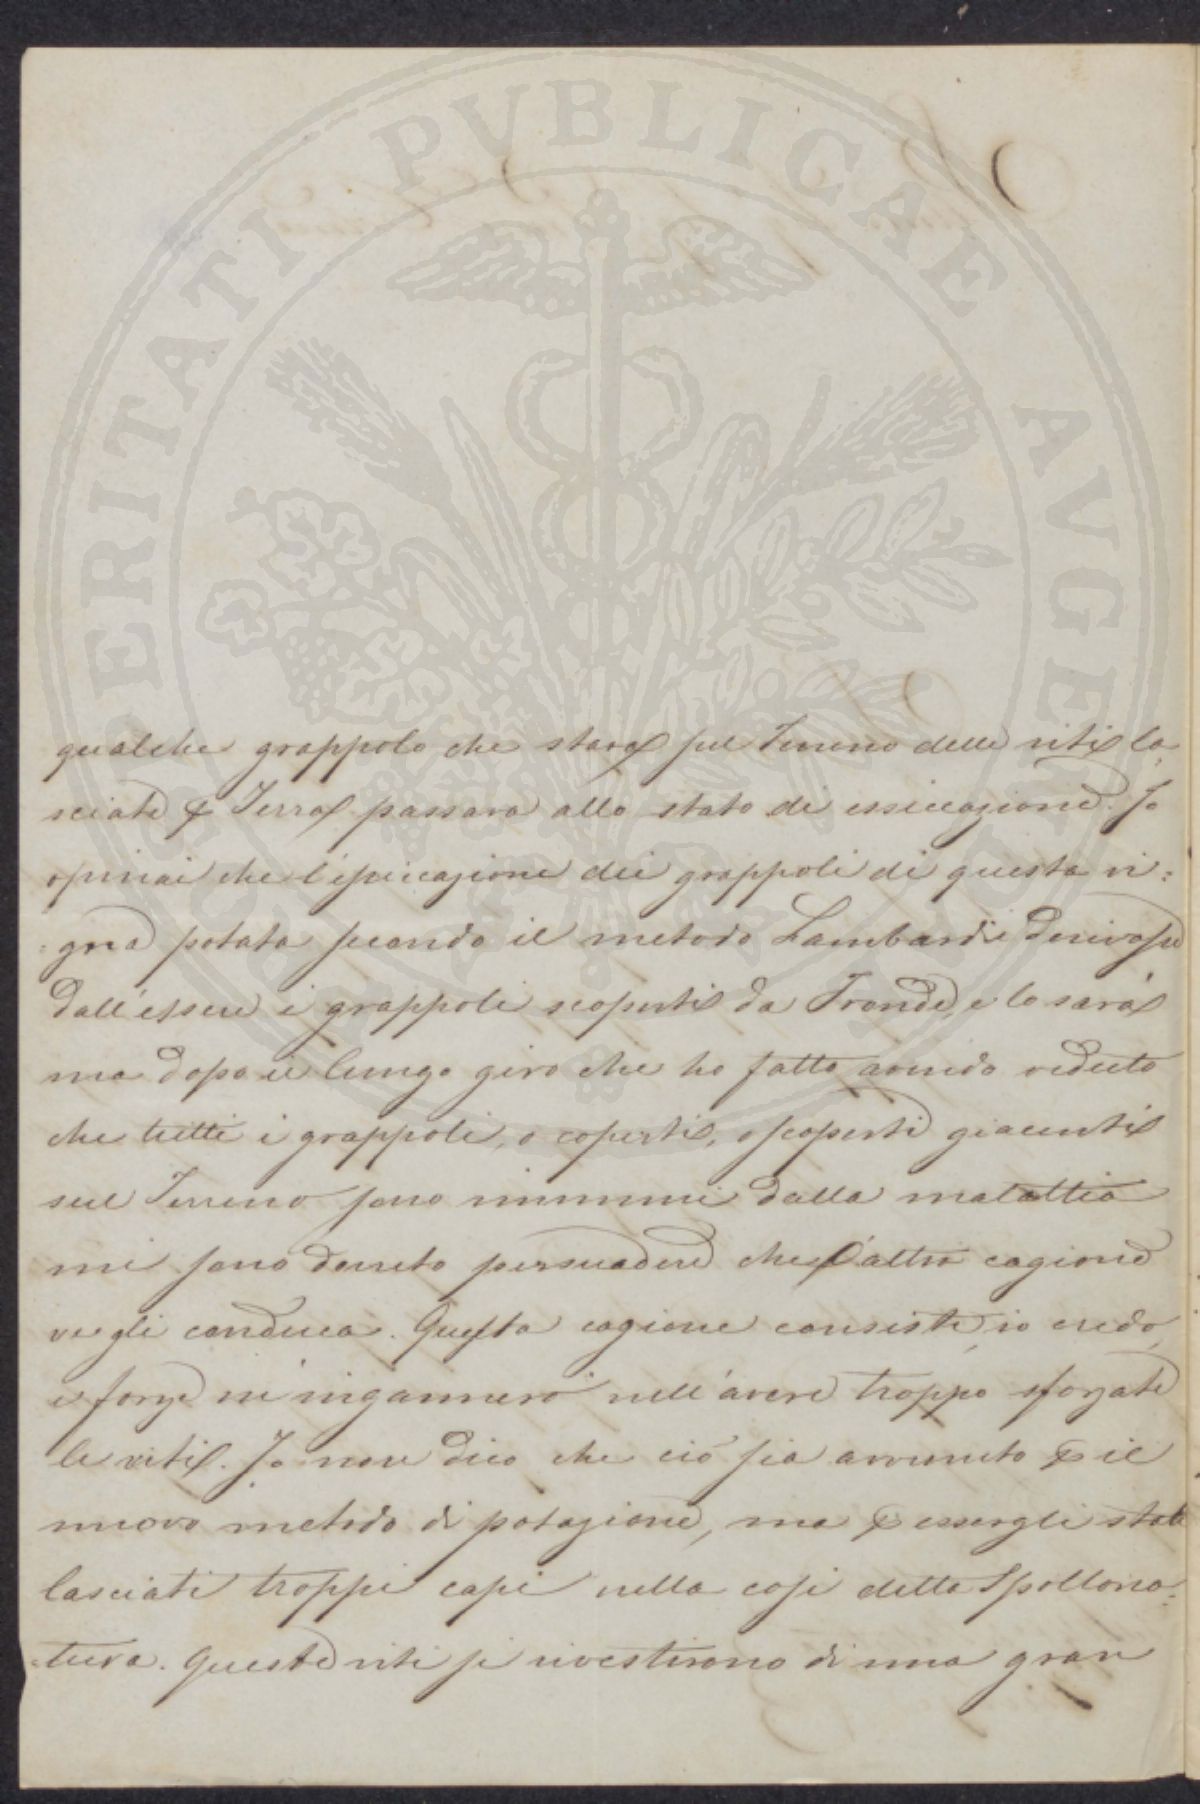 PROSPERITATI PUBLICAE AUGENDAE
qualche grappolo che stava sul Terreno delle viti la
sciate p Terra passava allo stato di essiccazione. Io
opinai che l'essiccazione dei grappoli di questa vi:
:gna potata secondo il metodo Lambardi derivasse
dall'essere i grappoli scoperti da Fronde, e lo sarà
ma dopo il lungo giro che ho fatto avendo veduto
che tutti i grappoli, o coperti, o scoperti giacenti
sul Terreno sono immuni dalla malattia
mi sono dovuto persuadere che altra cagione
ve gli conduca. Questa cagione consiste, io credo,
e forse m'ingannerò nell'avere troppo sforzate
le viti. Io non dico che ciò sia avvenuto p il
nuovo metodo di potazione, ma p essergli state
lasciati troppi capi nella così detta Spollona:
:tura. Queste viti si rivestirono di una gran